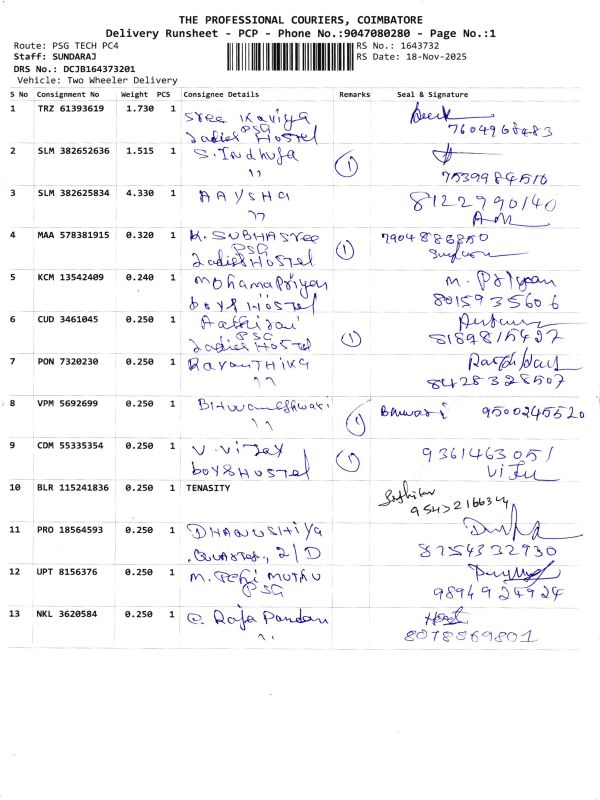 THE PROFESSIONAL COURIERS, COIMBATORE
Delivery Runsheet - PCP - Phone No.:9047080280 - Page No.:1
Route: PSG TECH PC4 RS No.: 1643732
Staff: SUNDARAJ RS Date: 18-Nov-2025
DRS No.: DCJB164373201
Vehicle: Two Wheeler Delivery
S No Consignment No Weight PCS Consignee Details Remarks Seal & Signature
1 TRZ 61393619 1.730 1 Sree Kaviya
PSG
Ladies Hostel 7604968483
2 SLM 382652636 1.515 1 S. Indhuja
" 1 7539984510
3 SLM 382625834 4.330 1 AAYSHA 8122990140
"
4 MAA 578381915 0.320 1 K. SUBHASree 7904886850
PSG 1
Ladies Hostel
5 KCM 13542409 0.240 1 Mohanapriyan M. Priyan
boys Hostel 8015935606
6 CUD 3461045 0.250 1
PSG 1
Ladies Hostel
7 PON 7320230 0.250 1
" 8428328507
8 VPM 5692699 0.250 1 BHuvaneshwari 1 Bhuvari 9500245520
"
9 CDM 55335354 0.250 1 V. Vijay 1 9361463051
boys Hostel Viju
10 BLR 115241836 0.250 1 TENASITY
9543216634
11 PRO 18564593 0.250 1 DHANUSHiya
2/D 8754332930
12 UPT 8156376 0.250 1 M. MUTHU
PSG 9894924924
13 NKL 3620584 0.250 1 C. Raja Pandian
" 8078569801